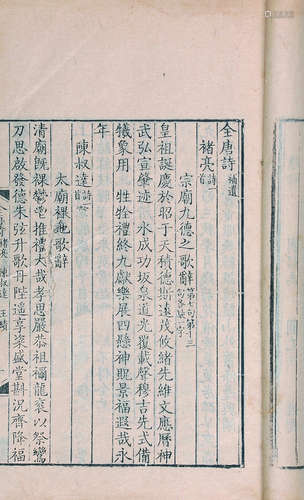 全唐詩補遺
褚亮詩一首
宗廟九德之歌辭
皇祖誕慶於昭于天積德斯遠茂攸緒先維文應曆神
武弘宣肇迹 水成功坂泉道光覆載聲穆吉先式備
犧象用 牲牷禮終九獻樂展四懸神貺景福遐哉永
年
陳叔達詩
太廟祼地歌辭
清廟既祼鬱鬯推禮大哉孝思嚴恭祖禰龍袞以祭鸞
刀思啟發德朱弦升歌丹陛遥享粢盛堂斟況齊降福